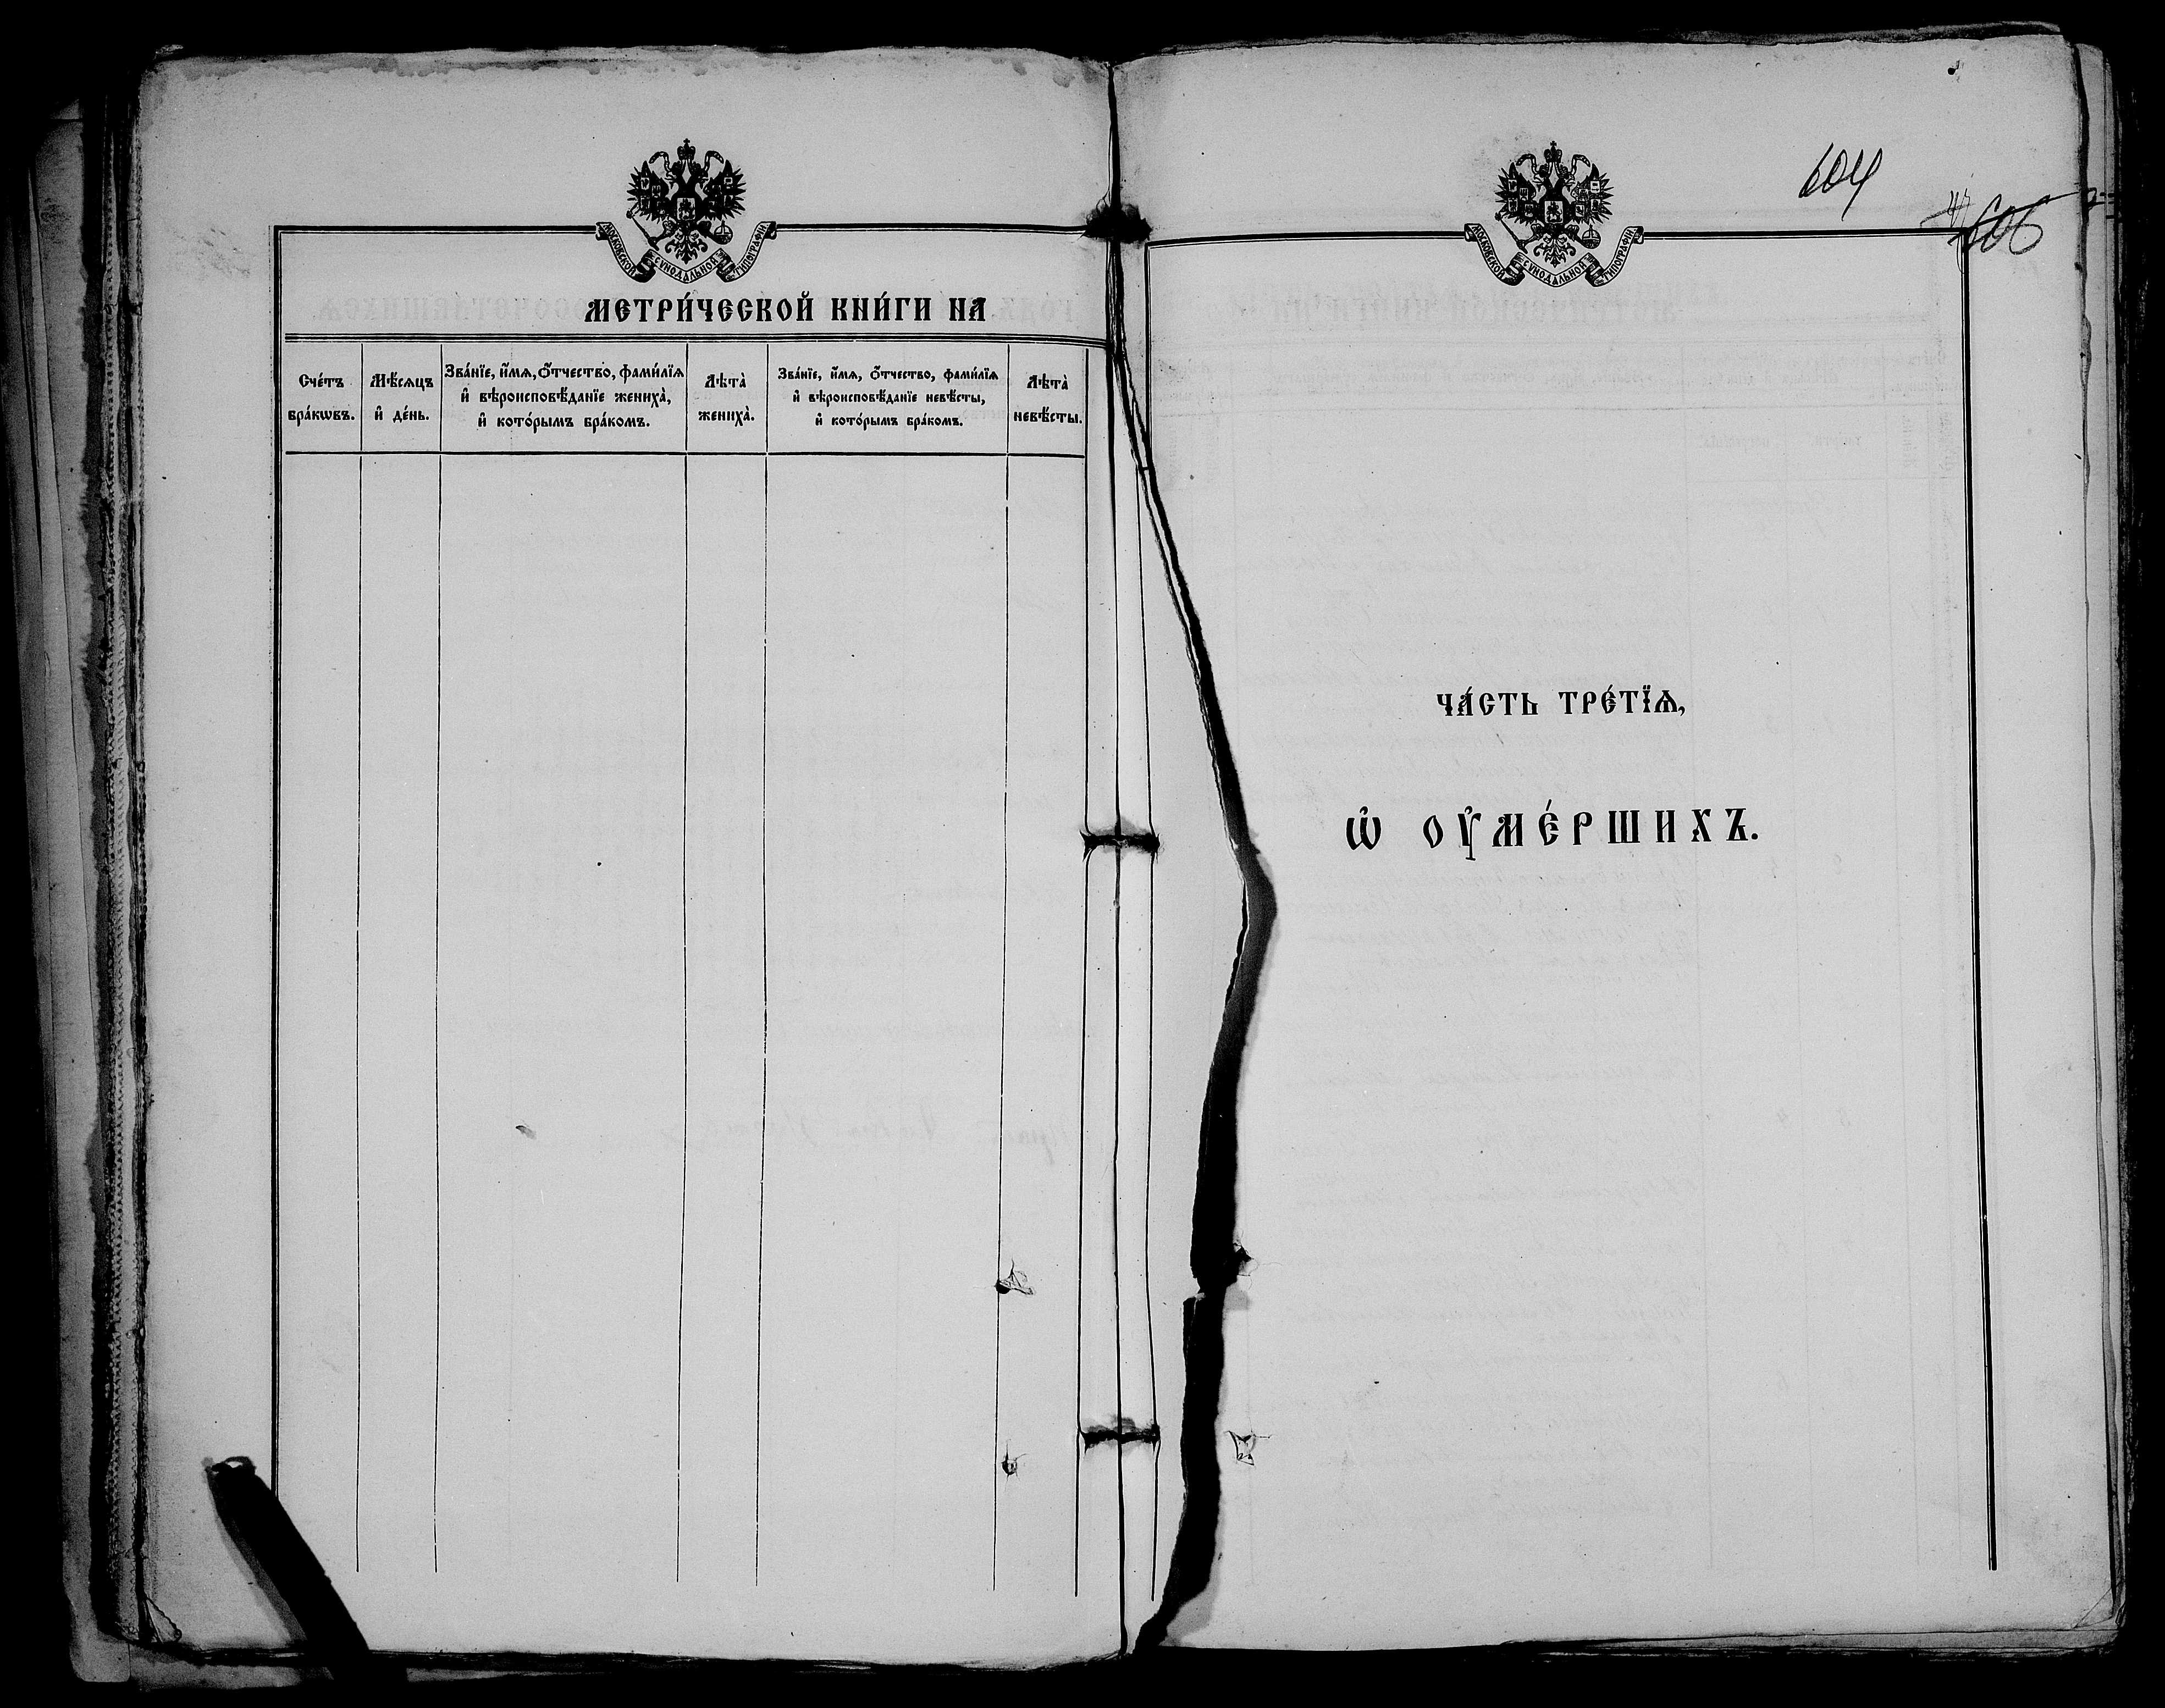 МОСКОВСКОЙ СѴНОДАЛЬНОЙ ТИПОГРАФІИ
МЕТРИ́ЧЕСКОЙ КНИ́ГИ НА
Сче́тъ
бра́кѡвъ.
Мѣ́сяцъ
и҆ де́нь.
Зва́нїе, и҆́мѧ, ѻ҆́тчество, фами́лїѧ
и҆ вѣроисповѣ́данїе жениха̀,
и҆ кото́рымъ бра́комъ.
Лѣта̀
жениха̀.
Зва́нїе, и҆́мѧ, ѻ҆́тчество, фами́лїѧ
и҆ вѣроисповѣ́данїе невѣ́сты,
и҆ кото́рымъ бра́комъ.
Лѣта̀
невѣ́сты.
604
606
МОСКОВСКОЙ СѴНОДАЛЬНОЙ ТИПОГРАФІИ
ЧА́СТЬ ТРЕ́ТЇѦ,
Ѡ҆ ОУ҆МЕ́РШИХЪ.